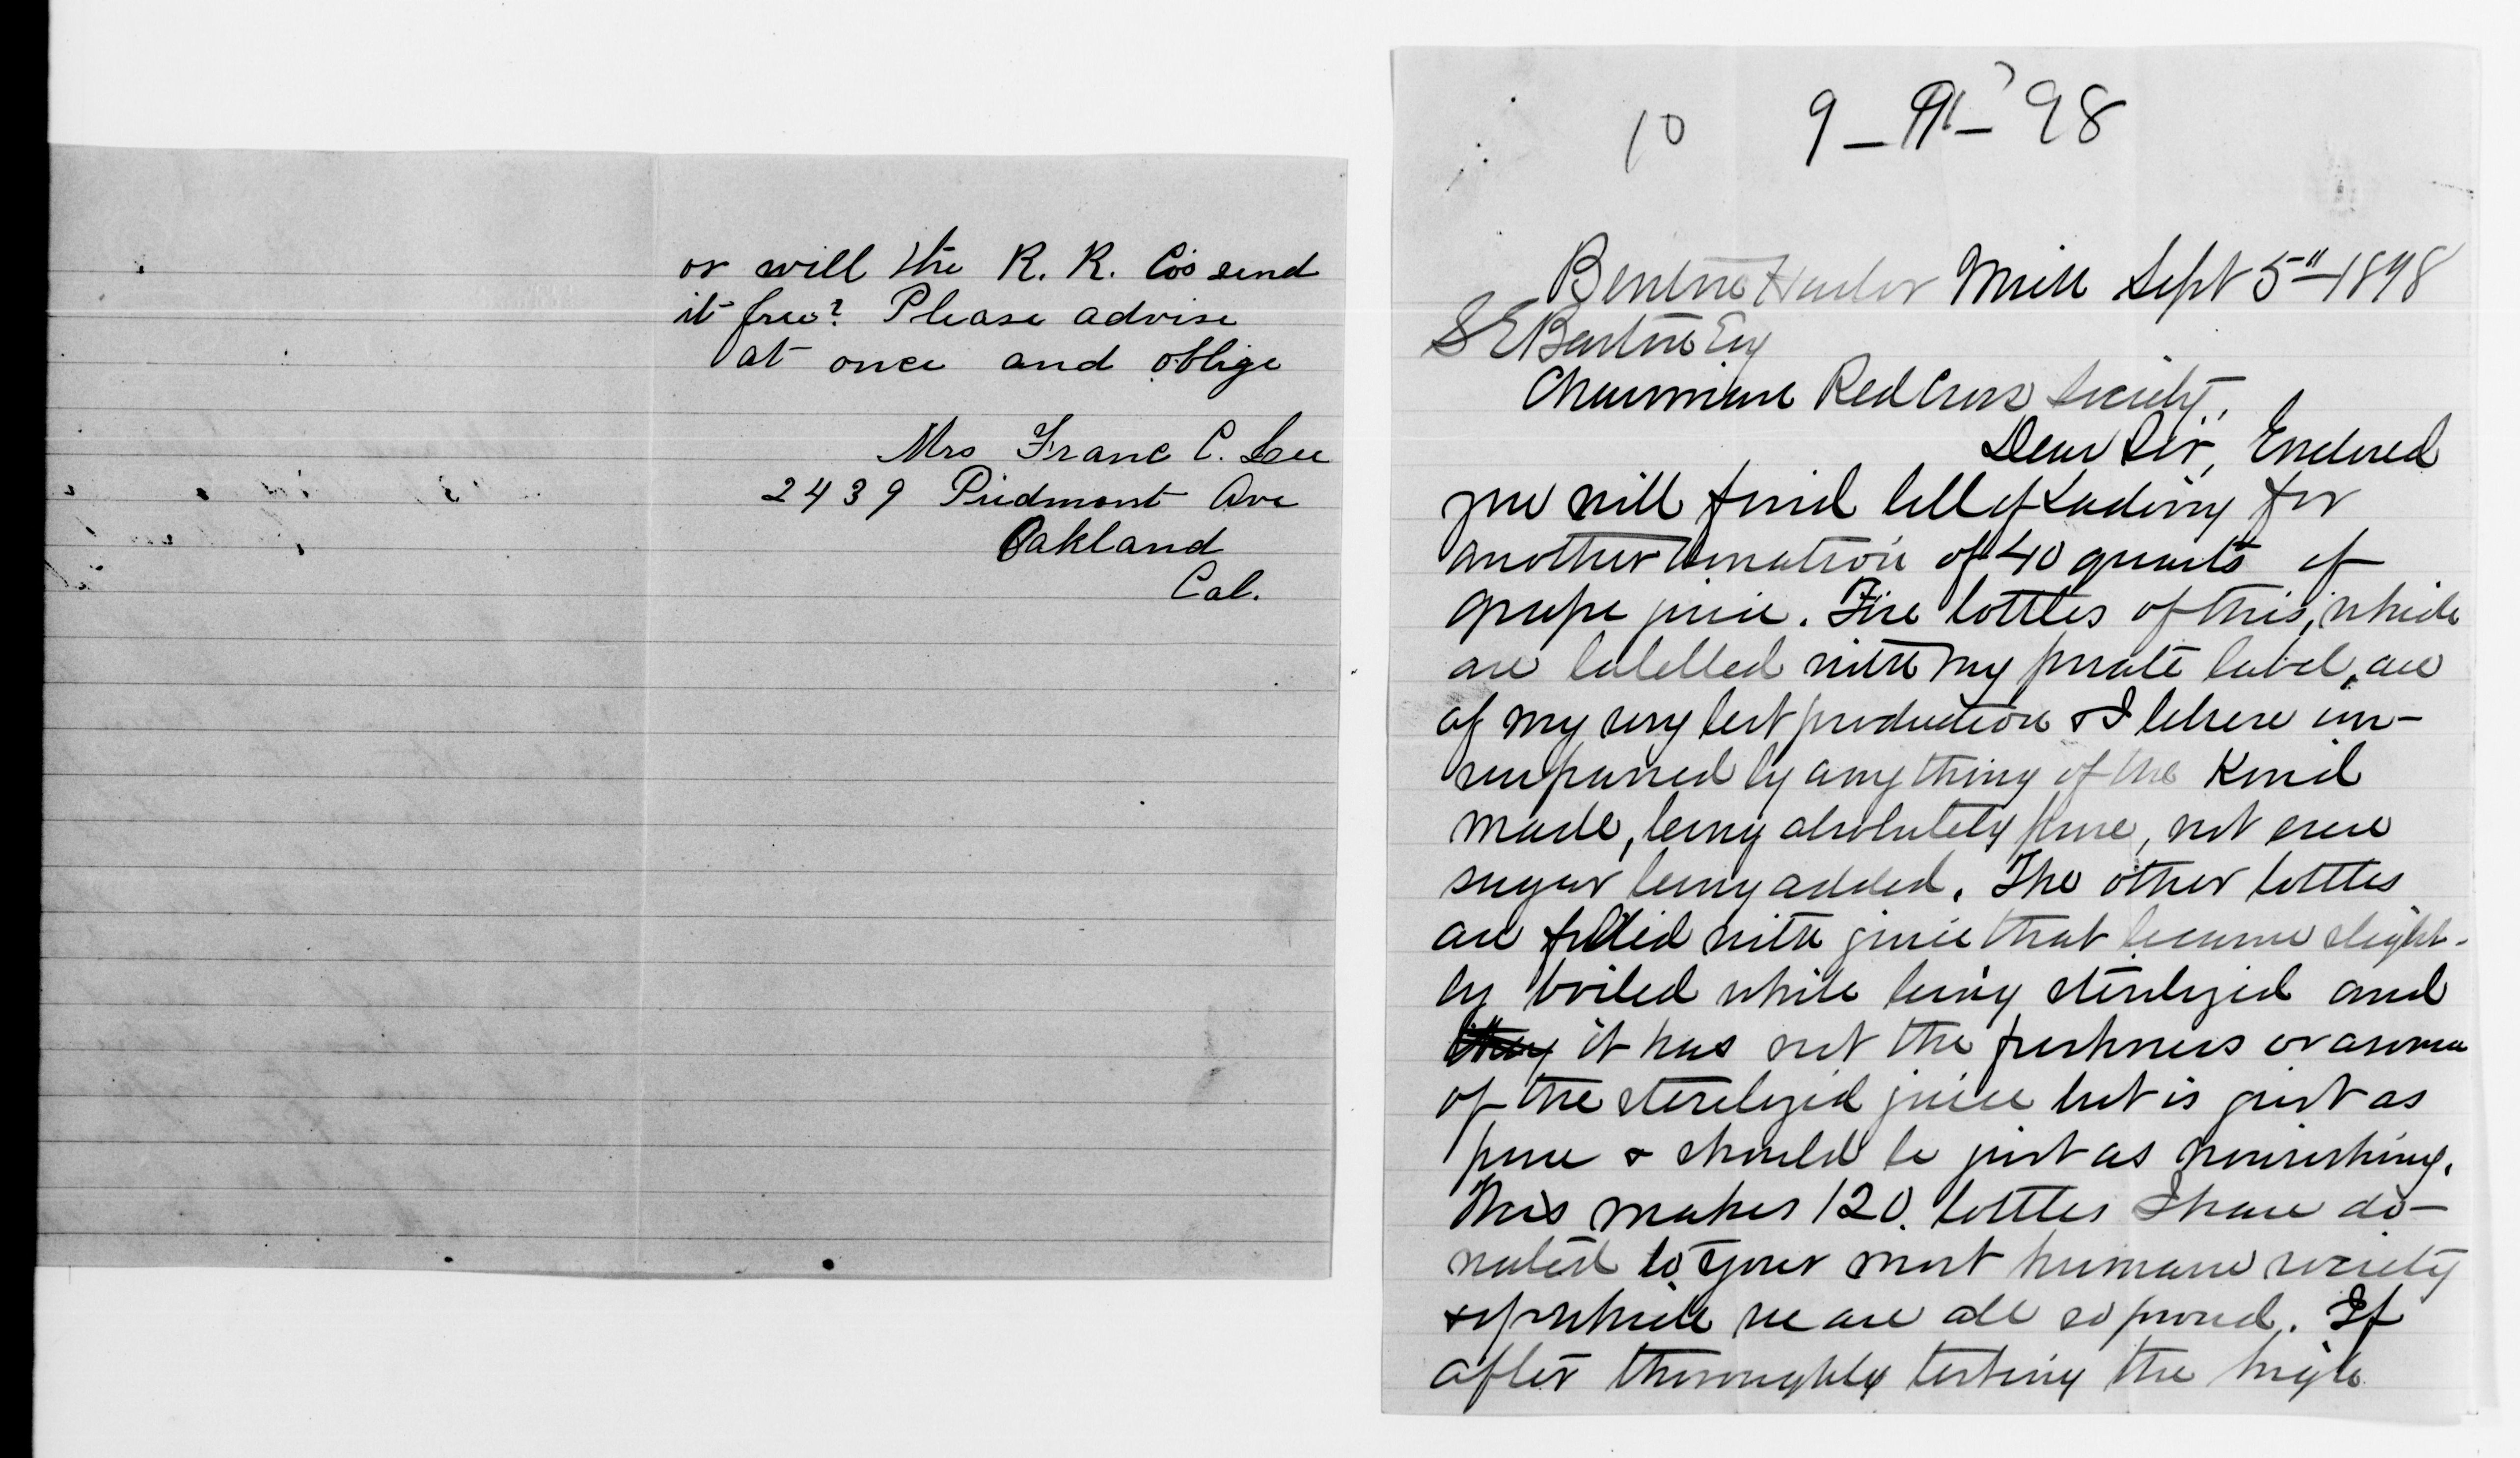 or will the R. R. Co's send
it free? Please advise
at once and oblige
Mrs Franc C. Lee
2439 Piedmont Ave
Oakland
Cal.
10 9 98
Benton Harbor Mich Sept 5" 1898
S E Barton Esq
Chairman Red Cross Society,
Dear Sir, Enclosed
you will find bill of Lading for
another donation of 40 quarts of
grape juice. Five bottles of this, which
are labelled with my private label, are
of my very best production & I believe un-
surpassed by any thing of the Kind
made, being absolutely pure, not even
sugar being added. The other bottles
are filled with juice that became slight-
ly boiled while being sterilized and
they it has not the freshness or aroma
of the sterilized juice but is just as
pure & should be just as nourishing.
This makes 120 bottles I have do-
nated to your most humane society
& of which we are all so proud. If
after thoroughly testing the high